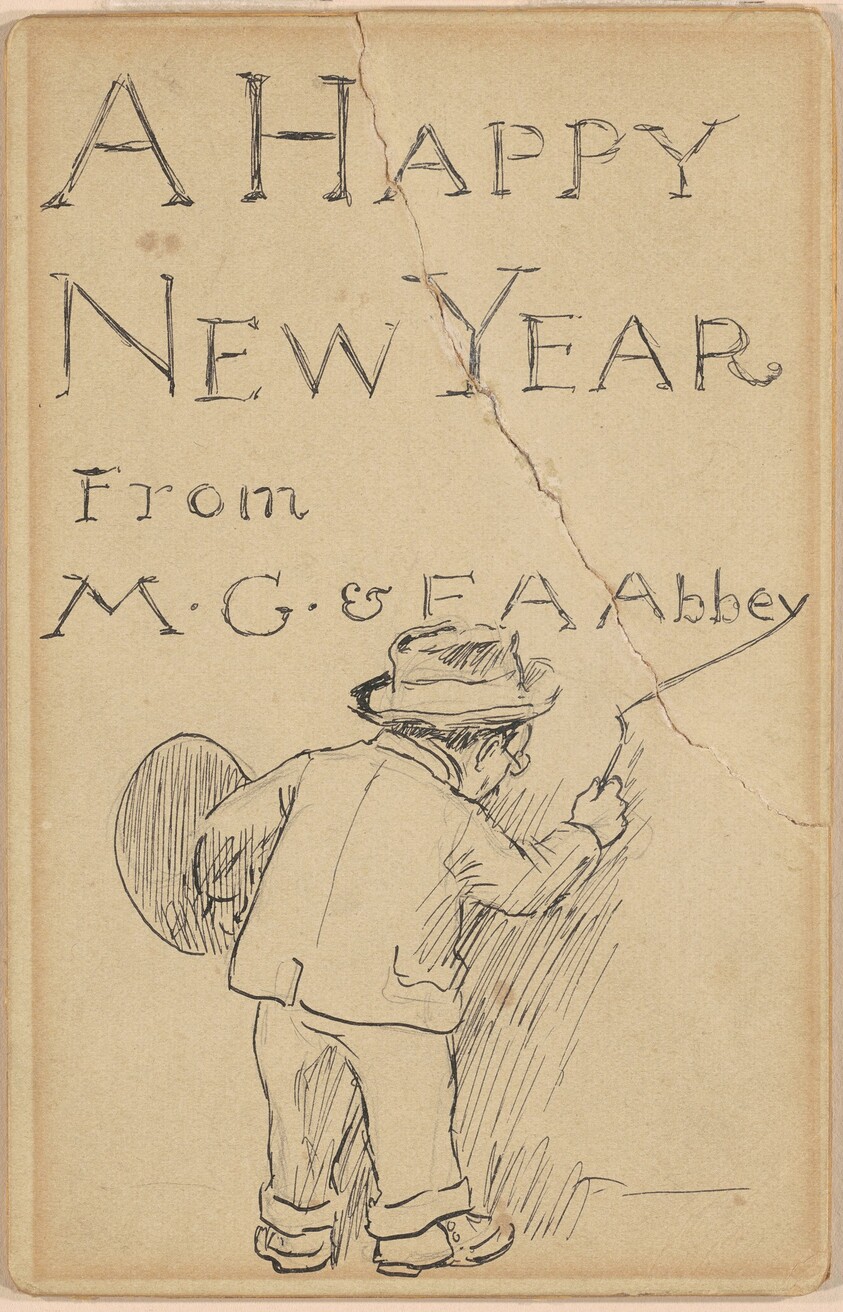 A HAPPY
NEW YEAR
From
M·G·& E A Abbey